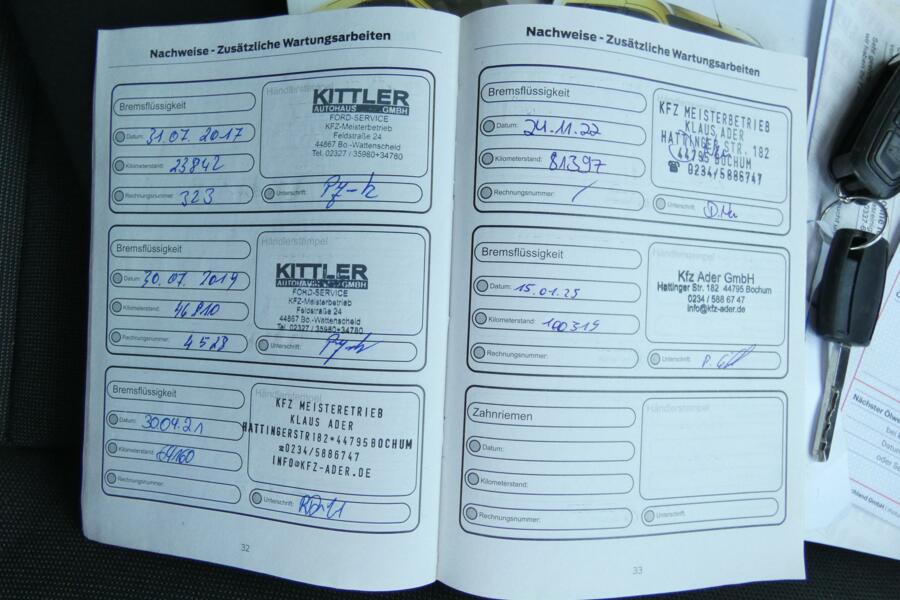 Nachweise - Zusätzliche Wartungsarbeiten
Bremsflüssigkeit
Datum: 31.07.2017
Kilometerstand: 23842
Rechnungsnummer: 323
Händlerstempel
KITTLER
AUTOHAUS GMBH
FORD-SERVICE
KFZ-Meisterbetrieb
Feldstraße 24
44867 Bo.-Wattenscheid
Tel. 02327 / 35980+34780
Unterschrift:
Bremsflüssigkeit
Datum: 30.07.2019
Kilometerstand: 46810
Rechnungsnummer: 4528
Händlerstempel
KITTLER
AUTOHAUS GMBH
FORD-SERVICE
KFZ-Meisterbetrieb
Feldstraße 24
44867 Bo.-Wattenscheid
Tel. 02327 / 35980+34780
Unterschrift:
Bremsflüssigkeit
Datum: 30.04.21
Kilometerstand: 64160
Rechnungsnummer:
Händlerstempel
KFZ MEISTERETRIEB
KLAUS ADER
HATTINGERSTR182*44795BOCHUM
☎0234/5886747
INFO@KFZ-ADER.DE
Unterschrift:
32
Nachweise - Zusätzliche Wartungsarbeiten
Bremsflüssigkeit
Datum: 24.11.22
Kilometerstand: 81397
Rechnungsnummer: /
KFZ MEISTERBETRIEB
KLAUS ADER
HATTINGER STR. 182
44795 BOCHUM
☎ 0234/5886747
Unterschrift:
Bremsflüssigkeit
Datum: 15.01.25
Kilometerstand: 100319
Rechnungsnummer:
Händlerstempel
Kfz Ader GmbH
Hattinger Str. 182 44795 Bochum
0234 / 588 67 47
info@kfz-ader.de
Unterschrift:
Zahnriemen
Datum:
Kilometerstand:
Rechnungsnummer:
Händlerstempel
Unterschrift:
33
Nächster Ölwe